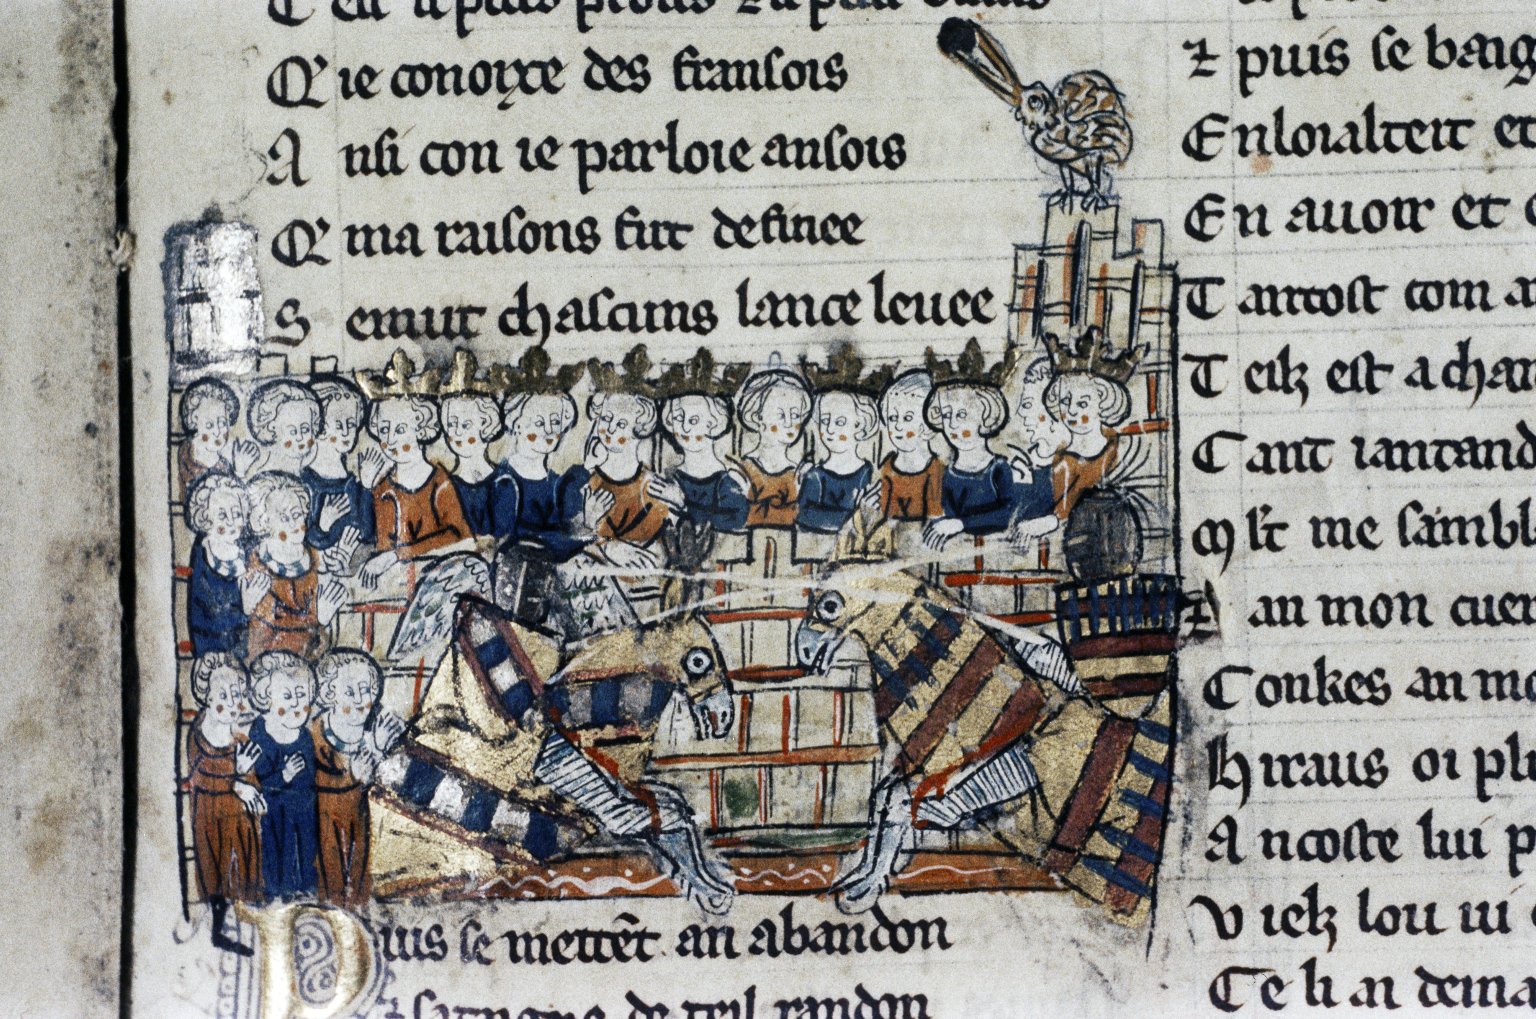 Q' ie conoixe des fransois
A nsi con ie parloie ansois
Q' ma raisons fut definee
S emut chascuns lance leuee
P uis se mettēt an abandon
de teil randon
⁊ puis se baig
E nloialteit et
E n auoir et
T antost com a
T eilz est a chan
C ant iantand
M lt me sambl
⁊ an mon cuer
C onkes an mo
H iraus oi pl
A ncoste lui p
V ielz lou ui
C e li ai dema